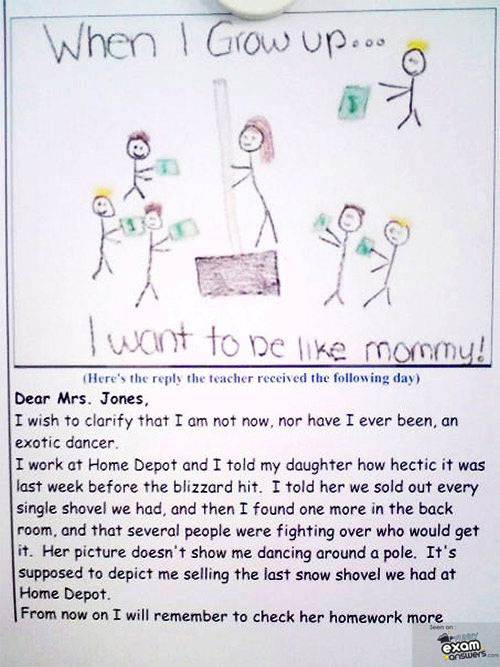 When I Grow up...
I want to be like mommy!
(Here's the reply the teacher received the following day)
Dear Mrs. Jones,
I wish to clarify that I am not now, nor have I ever been, an
exotic dancer.
I work at Home Depot and I told my daughter how hectic it was
last week before the blizzard hit. I told her we sold out every
single shovel we had, and then I found one more in the back
room, and that several people were fighting over who would get
it. Her picture doesn't show me dancing around a pole. It's
supposed to depict me selling the last snow shovel we had at
Home Depot.
From now on I will remember to check her homework more
Seen on
FUNNY
exam
answers.com